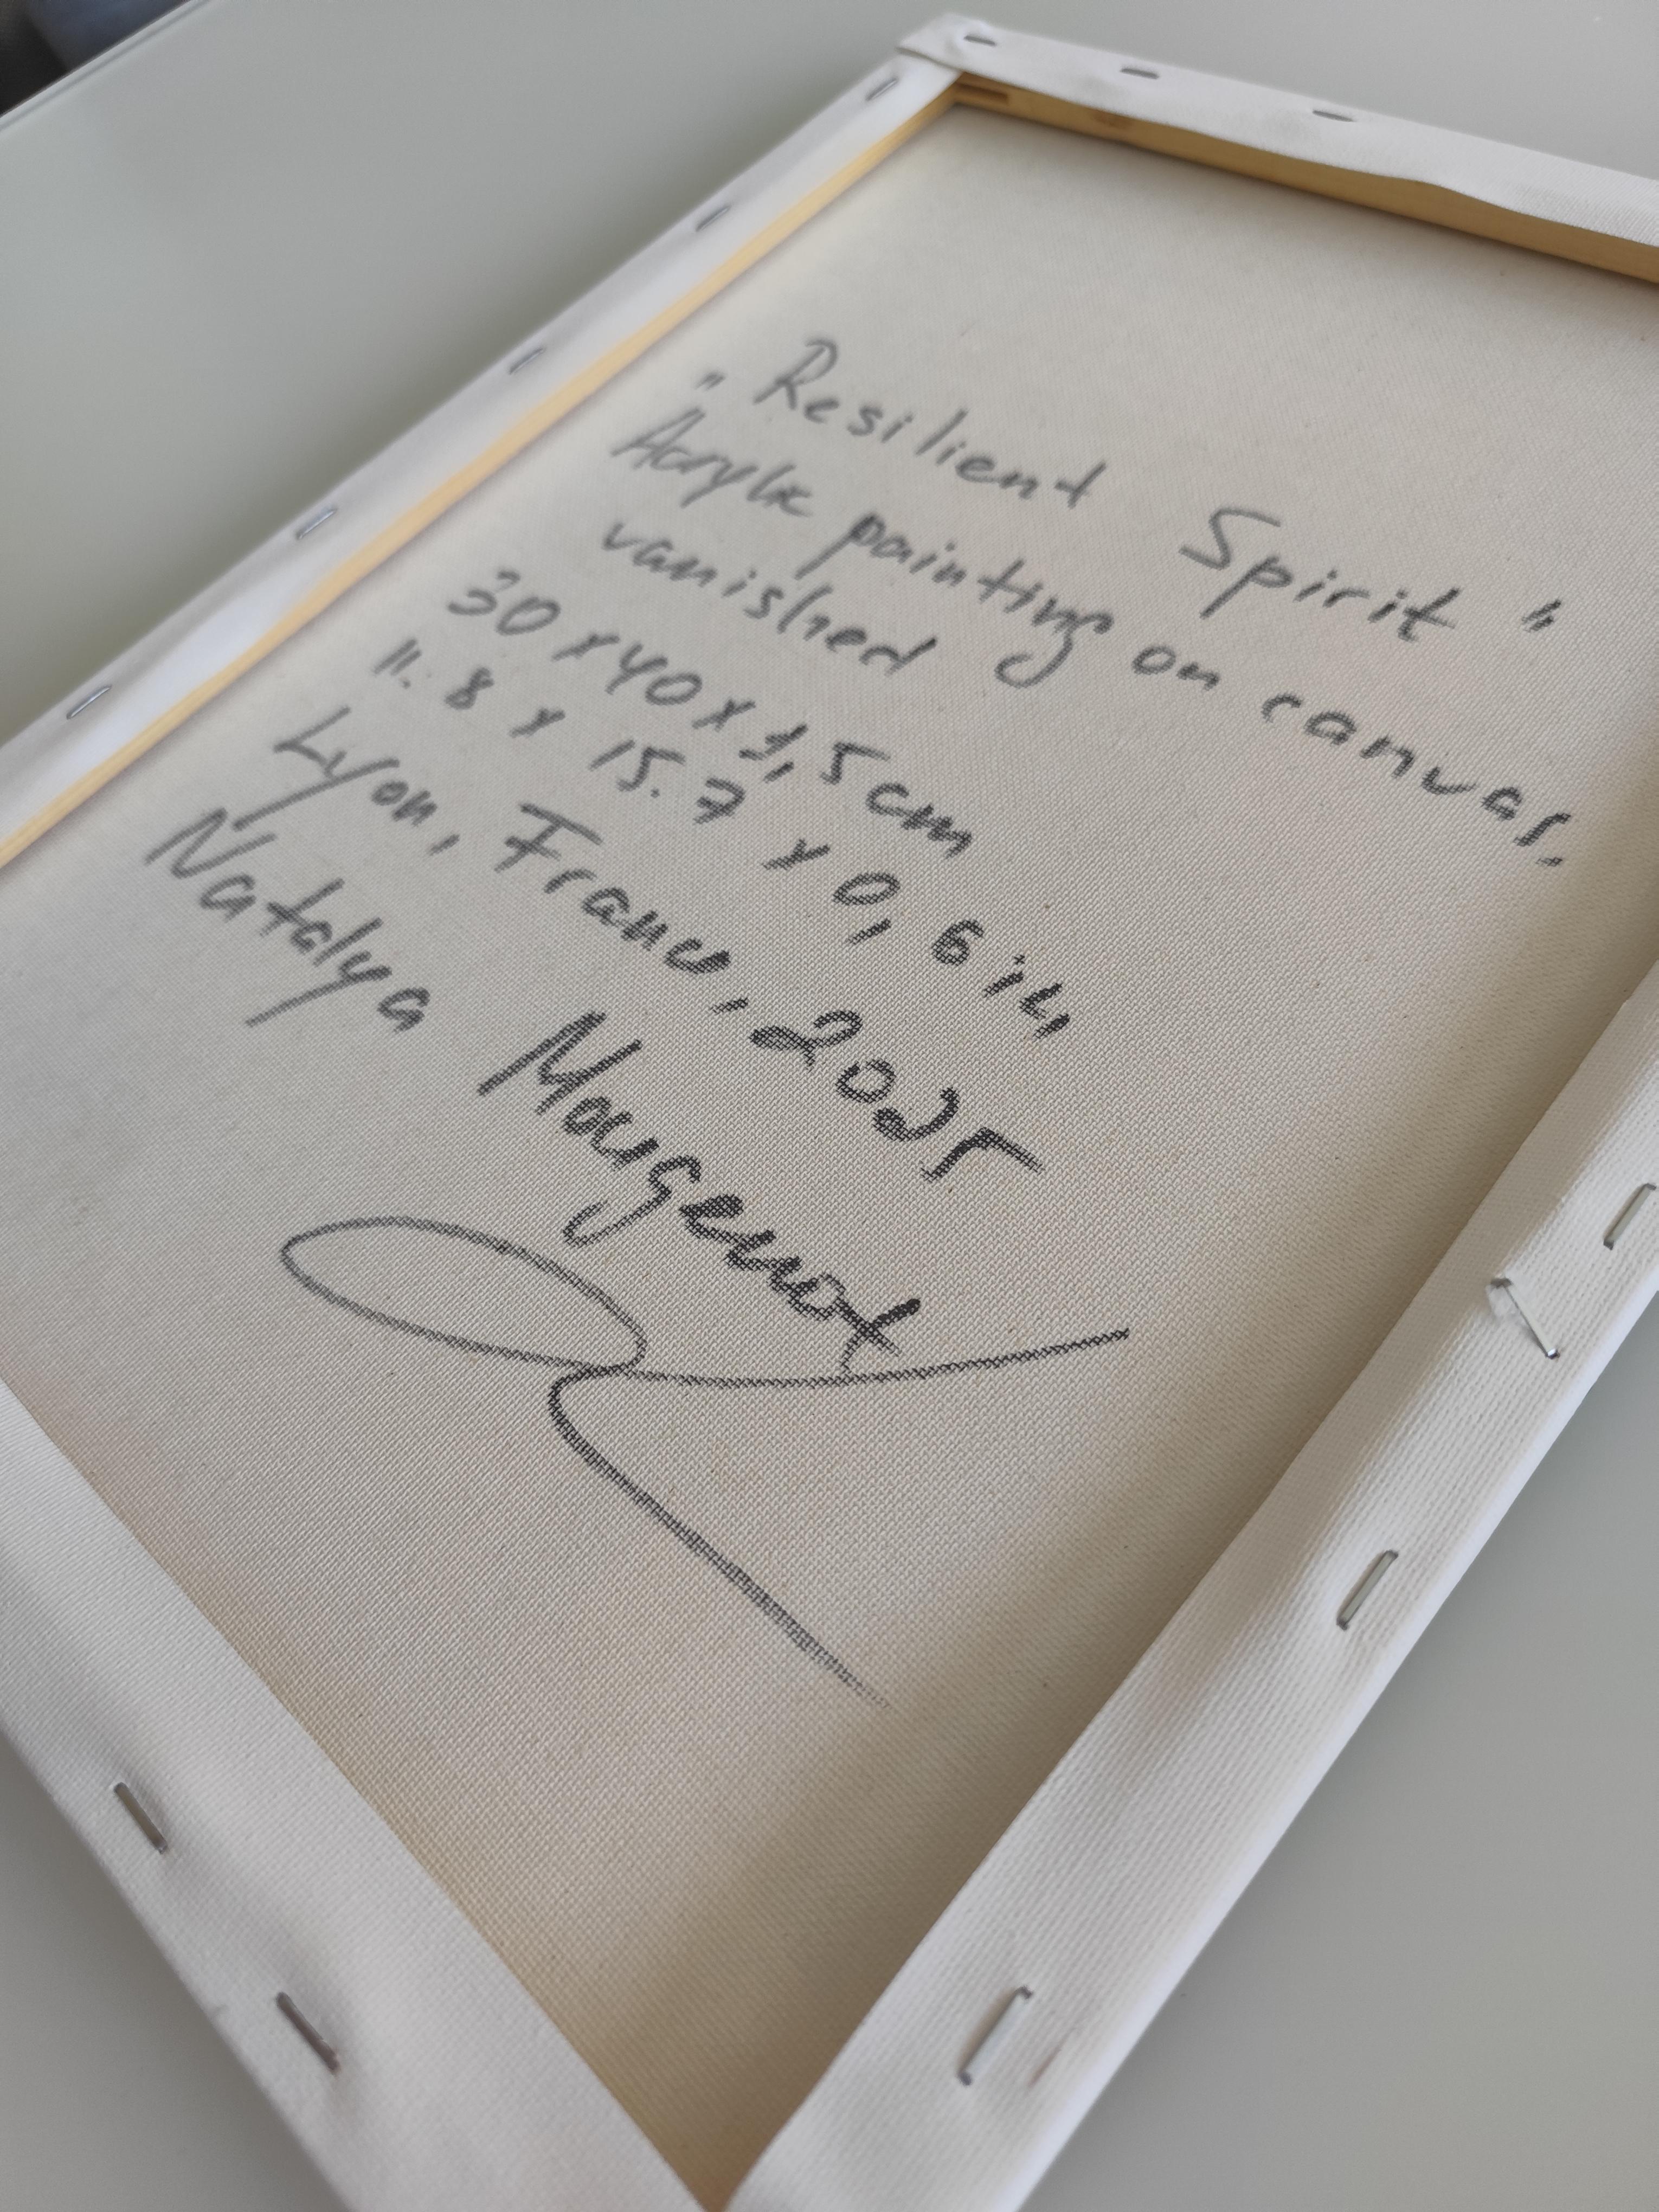 "Resilient Spirit"
Acrylic painting on canvas,
vanished
30 x 40 x 1,5 cm
11.8 x 15.7 x 0,6 in,
Lyon, France, 2025
Natalya Mougenot